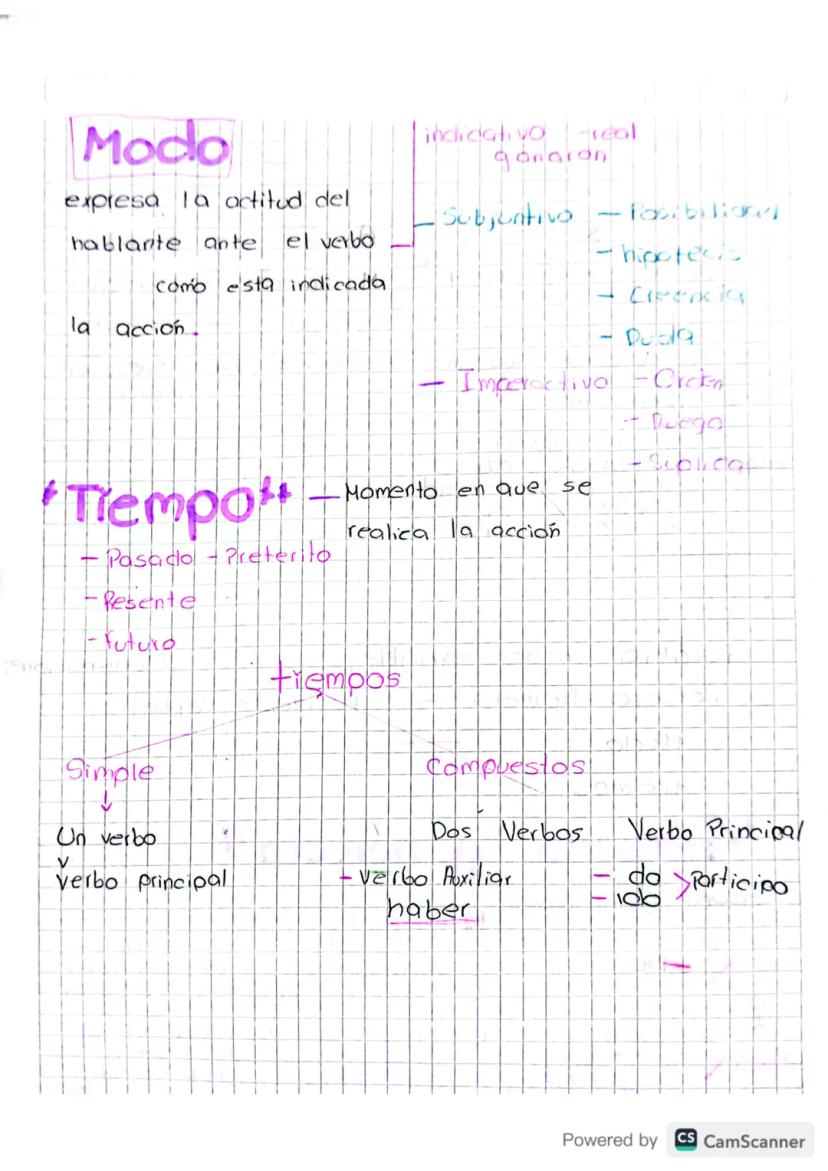 Modo
expresa la actitud del
hablante ante el verbo
como esta indicada
la acción.
indicativo - real
ganaron
- Subjuntivo - Posibilidad
- hipotecis
- Creencia
- Duda
- Imperactivo - Orden
- Ruego
- Suplica
"Tiempo" - Momento en que se
realica la acción
- Pasado - Preterito
- Presente
- Futuro
tiempos
Simple
Compuestos
Un verbo
y
verbo principal
Dos Verbos
Verbo Principal
- verbo Auxiliar
haber
- do
- ido
Participo
Powered by CS CamScanner